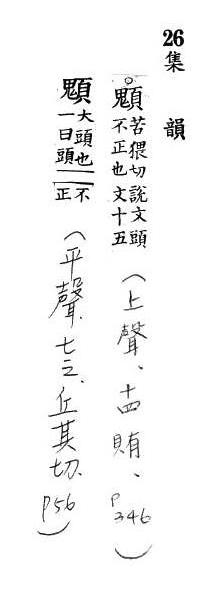 26集韻
䫥苦猥切說文頭
不正也文十五
(上聲、十四賄、P346)
䫥大頭也
一曰頭
不
正
(平聲、七之、丘其切、P56)